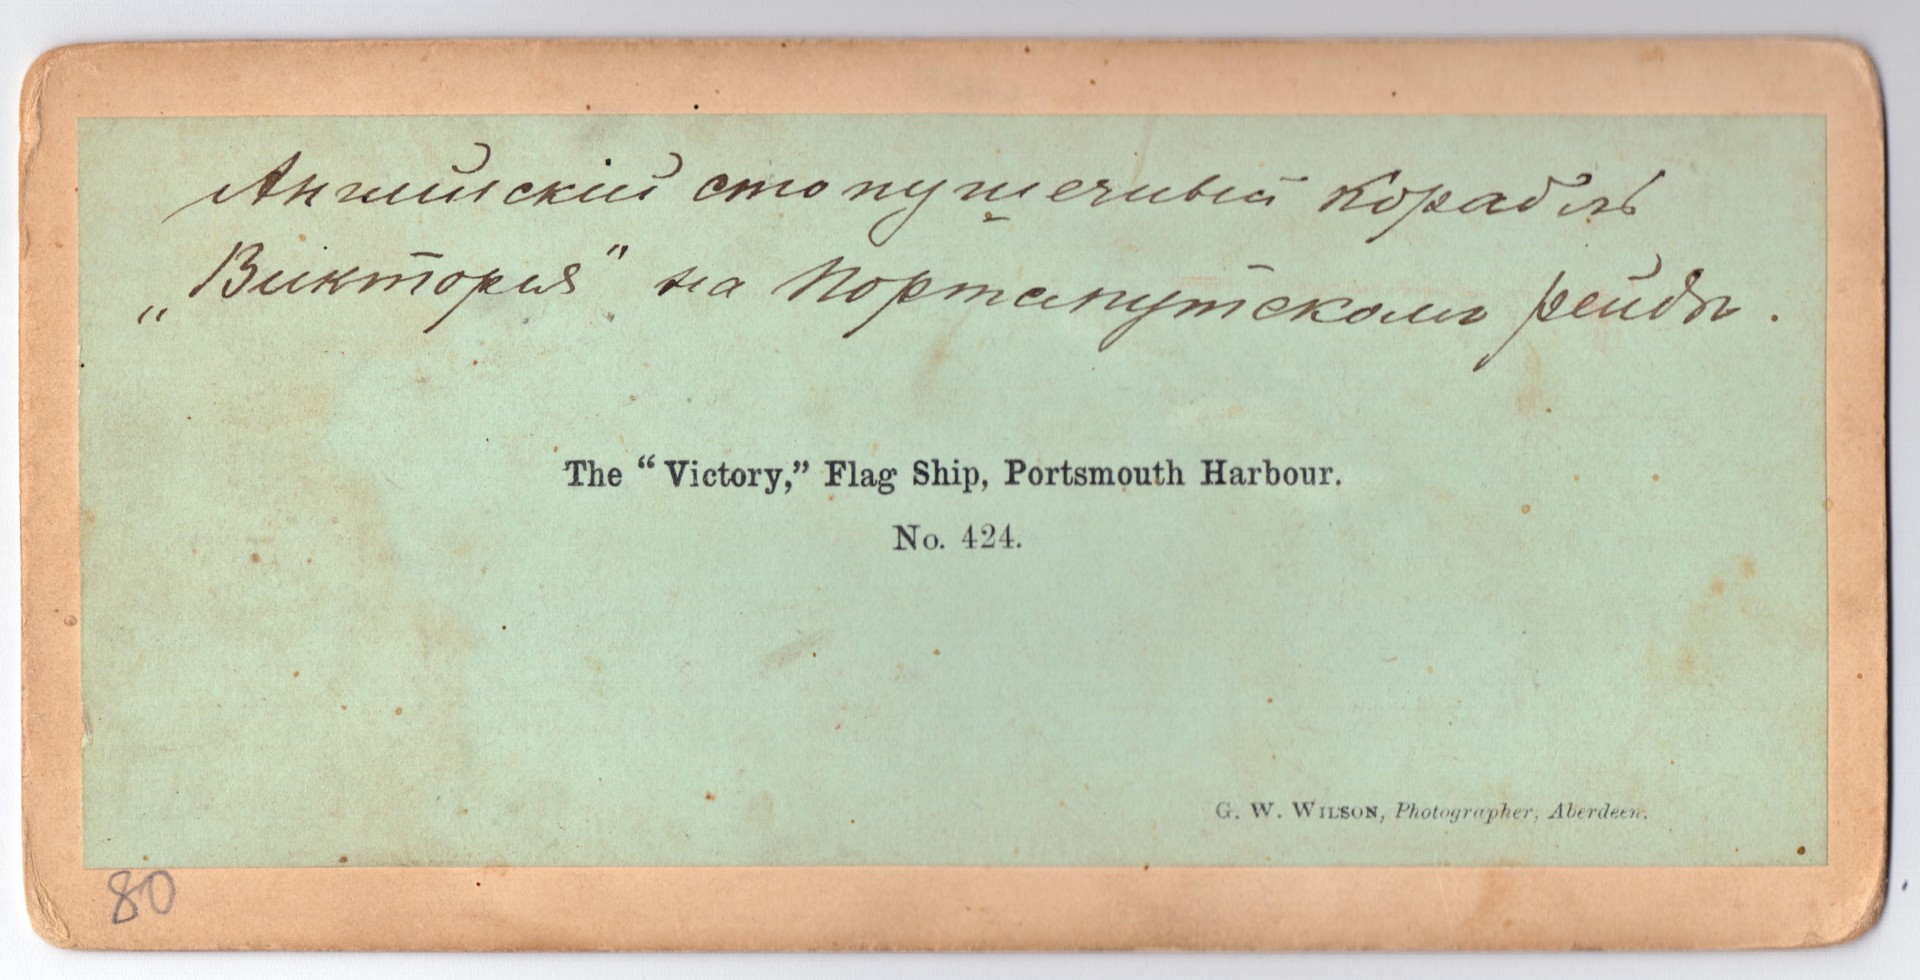 Англійскій стопушечный корабль
„Викторія" на Портсмутскомъ рейдѣ.
The “Victory,” Flag Ship, Portsmouth Harbour.
No. 424.
G. W. WILSON, Photographer, Aberdeen.
80